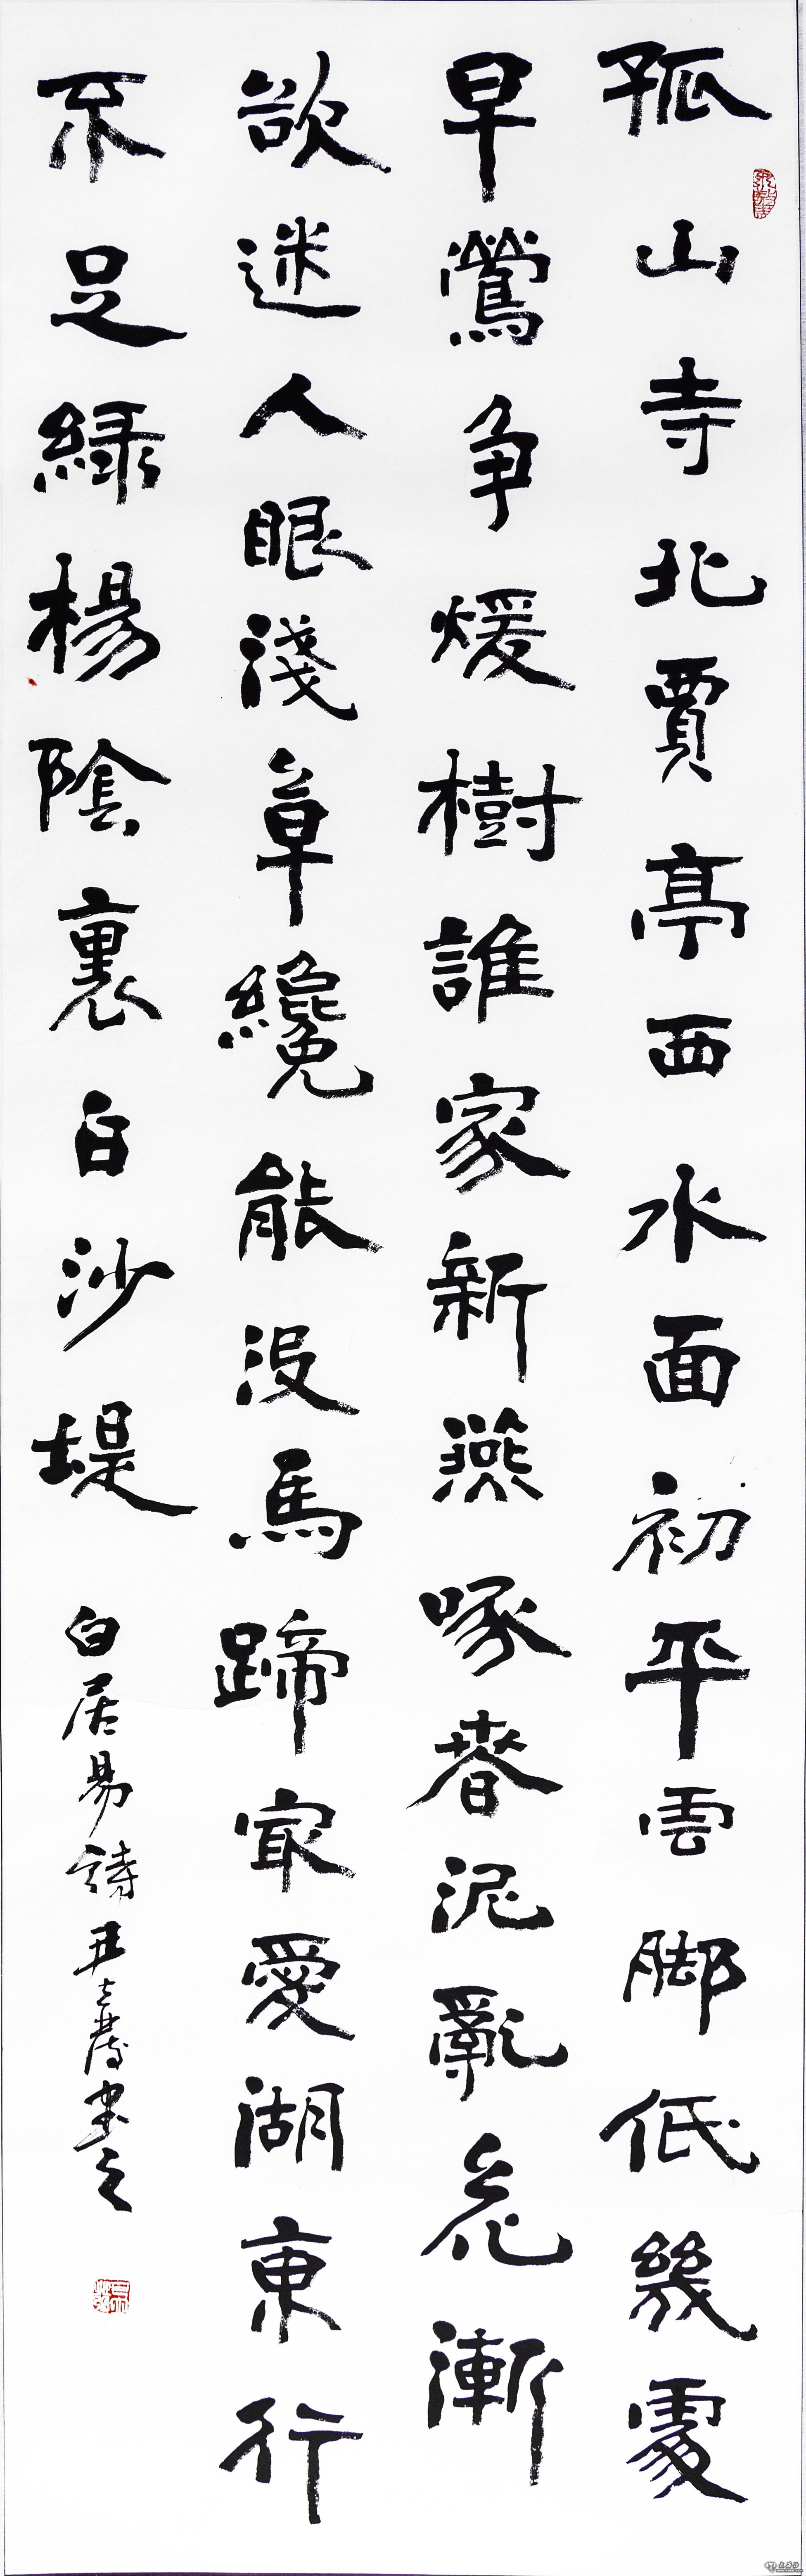 孤山寺北賈亭西水面初平雲脚低幾處
早鶯争煖樹誰家新燕啄春泥亂花漸
欲迷人眼淺草纔能没馬蹄冣愛湖東行
不足緑楊陰裏白沙堤
白居易詩 書之